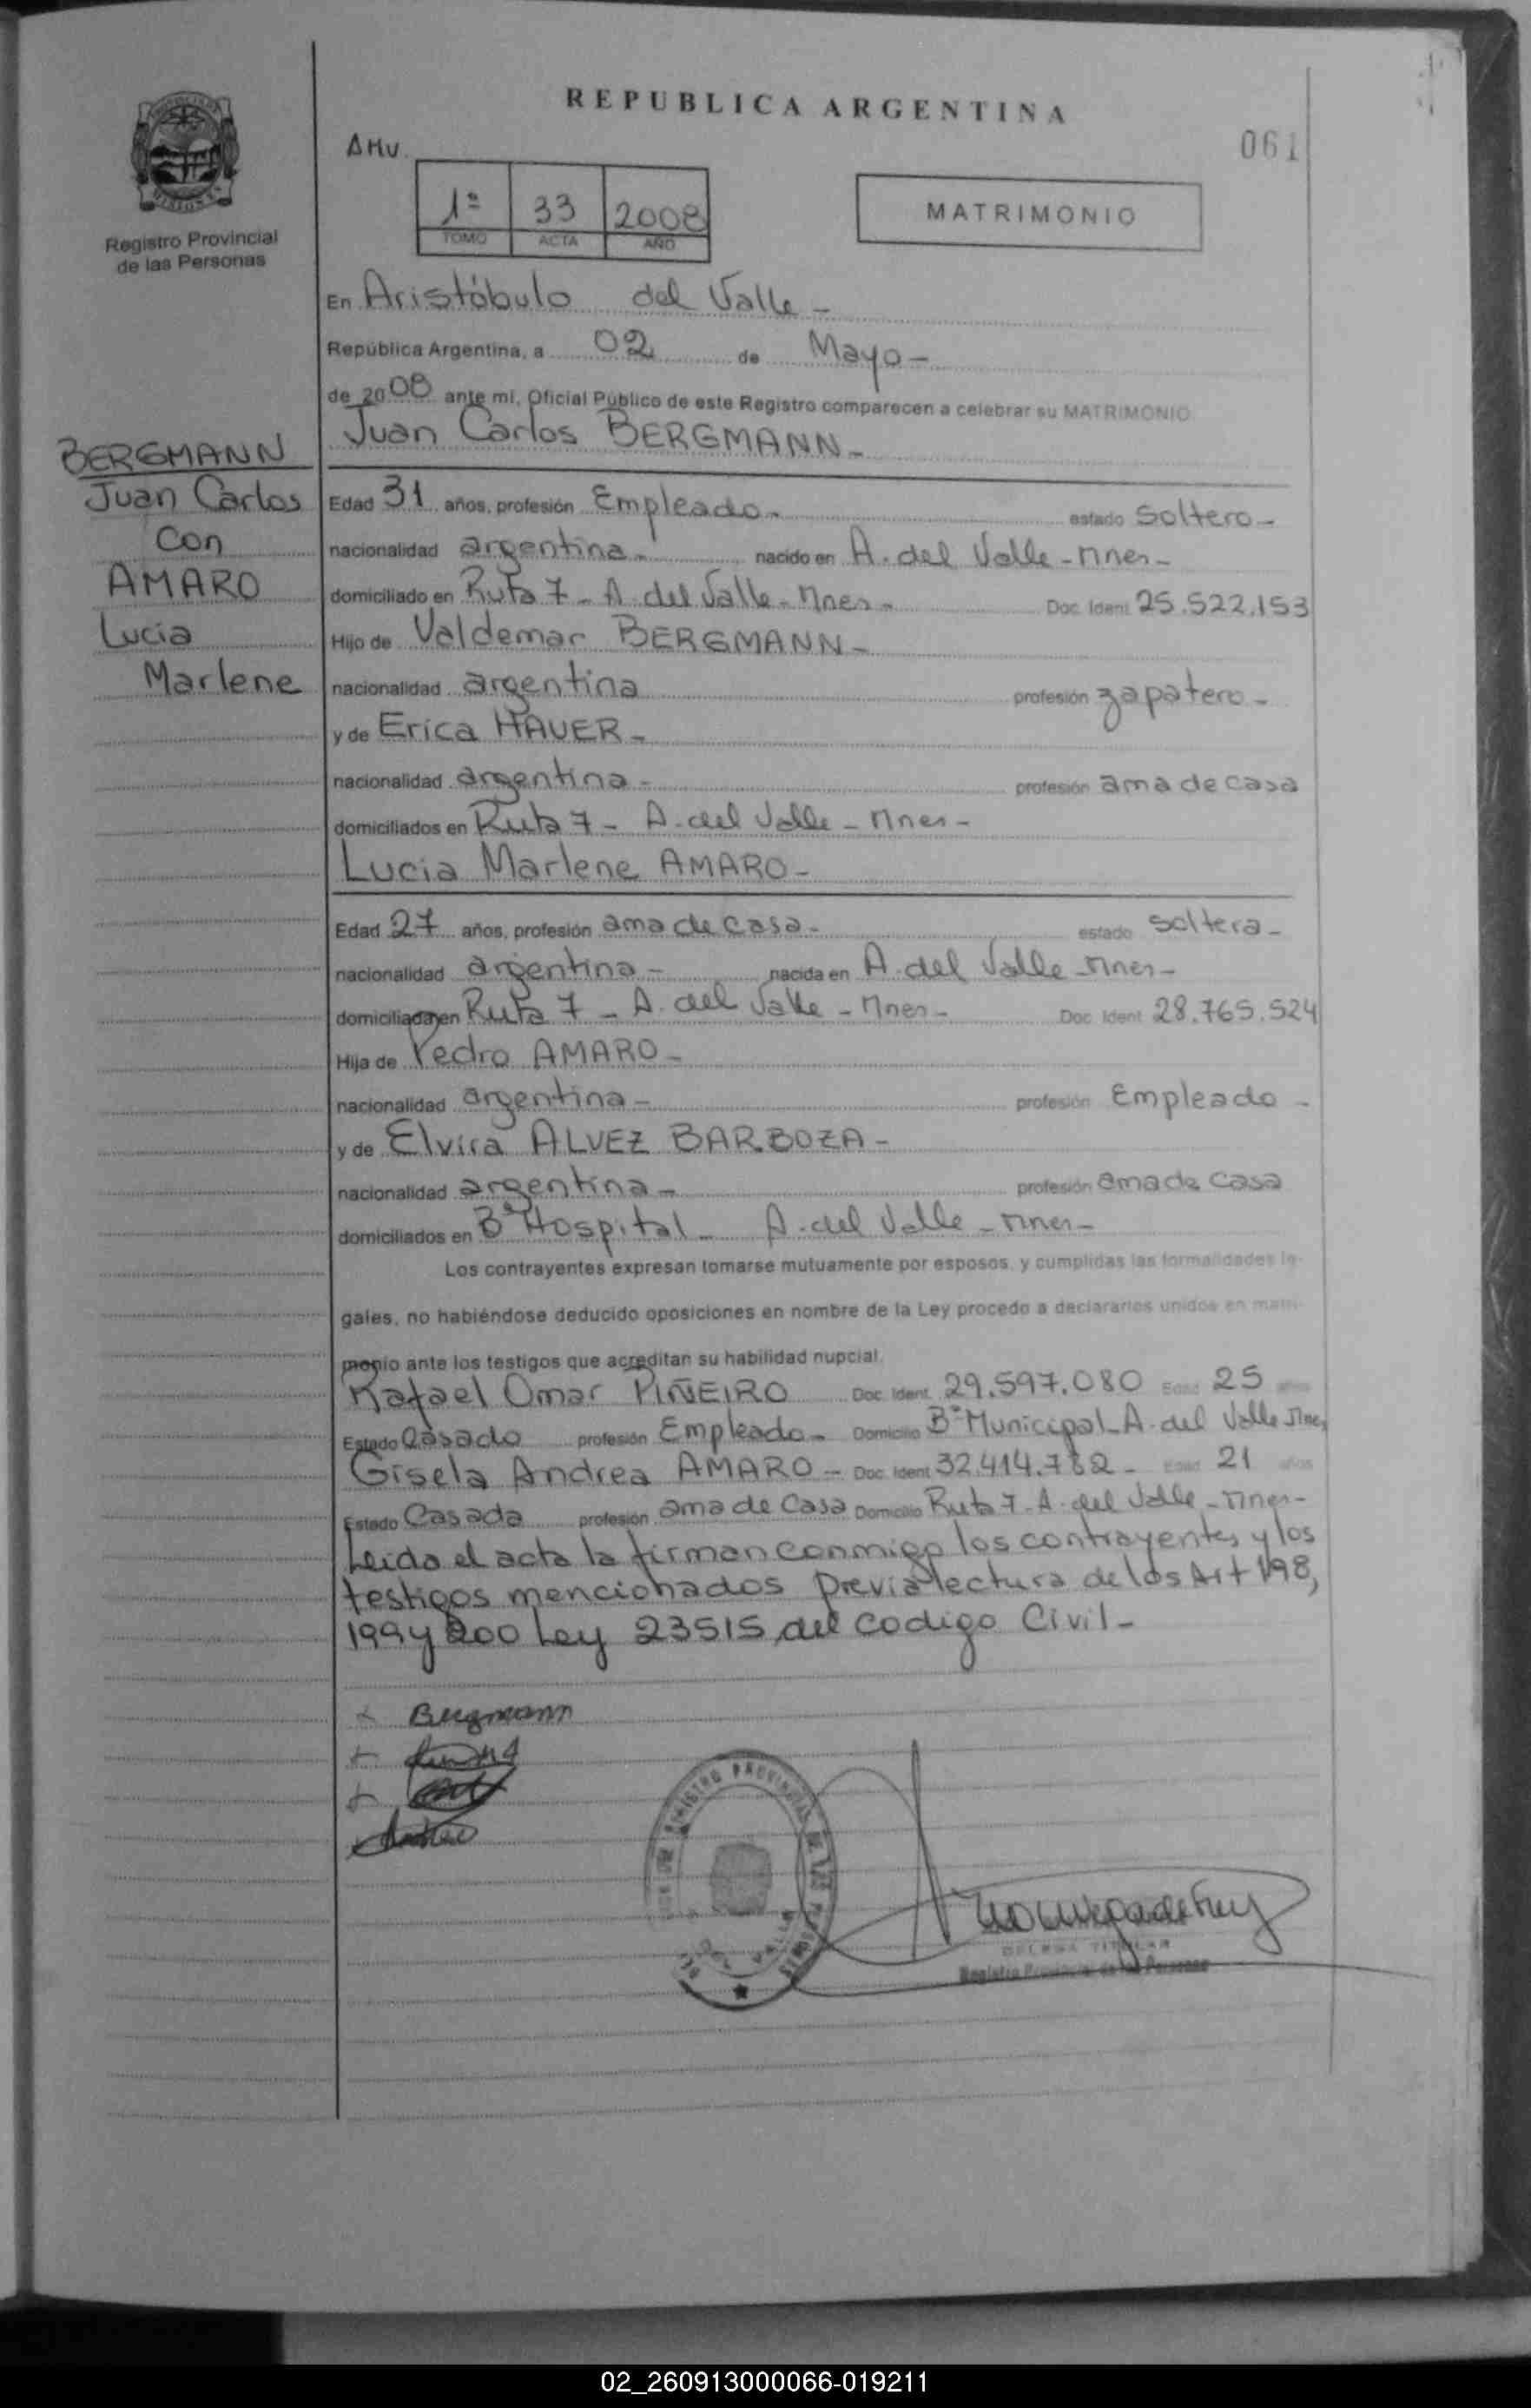 REPUBLICA ARGENTINA
061
AMV.
1º 33 2008
TOMO ACTA AÑO
MATRIMONIO
Registro Provincial
de las Personas
En Aristóbulo del Valle -
República Argentina, a 02 de Mayo -
de 2008 ante mi, Oficial Público de este Registro comparecen a celebrar su MATRIMONIO
Juan Carlos BERGMANN -
BERGMANN
Juan Carlos
Con
AMARO
Lucia
Marlene
Edad 31 años, profesión Empleado - estado Soltero -
nacionalidad argentina - nacido en A. del Valle - Mnes -
domiciliado en Ruta 7 - A. del Valle - Mnes - Doc. Ident. 25.522.153
Hijo de Valdemar BERGMANN -
nacionalidad argentina profesión zapatero -
y de Erica HAUER -
nacionalidad argentina - profesión ama de casa
domiciliados en Ruta 7 - A. del Valle - Mnes -
Lucia Marlene AMARO -
Edad 27 años, profesión ama de casa - estado Soltera -
nacionalidad argentina - nacida en A. del Valle - Mnes -
domiciliada en Ruta 7 - A. del Valle - Mnes - Doc. Ident. 28.765.524
Hija de Pedro AMARO -
nacionalidad argentina - profesión Empleado -
y de Elvira ALVEZ BARBOZA -
nacionalidad argentina - profesión ama de Casa
domiciliados en Bº Hospital - A. del Valle - Mnes -
Los contrayentes expresan tomarse mutuamente por esposos, y cumplidas las formalidades le-
gales, no habiéndose deducido oposiciones en nombre de la Ley procedo a declararlos unidos en matri-
monio ante los testigos que acreditan su habilidad nupcial.
Rafael Omar PIÑEIRO Doc. Ident. 29.597.080 Edad 25 años
Estado Casado profesión Empleado - Domicilio Bº Municipal - A. del Valle Mnes
Gisela Andrea AMARO - Doc. Ident. 32.414.782 - Edad 21 años
Estado Casada profesión ama de Casa Domicilio Ruta 7 - A. del Valle - Mnes -
Leida el acta la firman conmigo los contrayentes y los
testigos mencionados previa lectura de los Art 198,
199 y 200 Ley 23515 del Codigo Civil -
Bergmann
Registro Provincial de las Personas
02_260913000066-019211